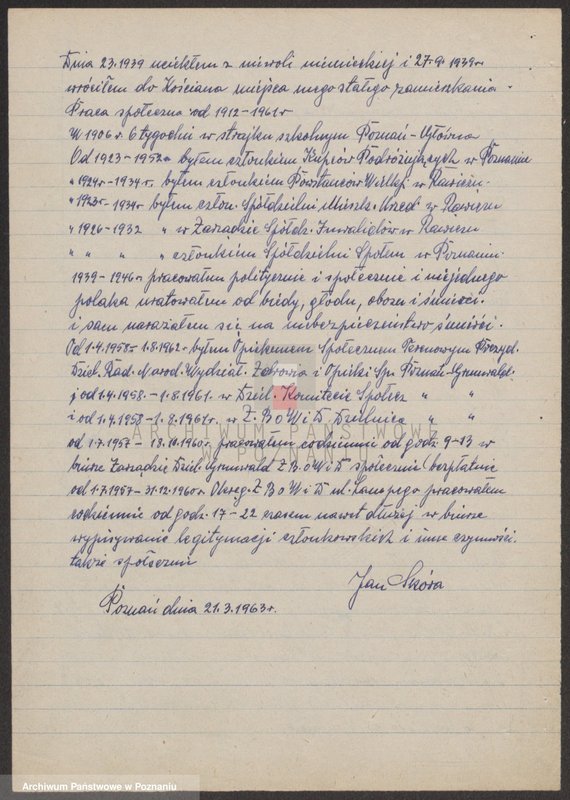 Dnia 23.1939 uciekłem z niewoli niemieckiej i 27.9.1939r
wróciłem do Kościana miejsca mego stałego zamieszkania.
Praca społeczna od 1912-1961r
W 1906r. 6 tygodni w strajku szkolnym Poznań-Główna
Od 1923-1952r byłem członkiem Kupców Podróżujących w Poznaniu
" 1924r-1934r. byłem członkiem Powstańców Wielkp. w Rawiczu.
" 1923r-1934r byłem człon. Spółdzielni Mieszk. Urzęd. w Rawiczu
" 1926-1932 " w Zarządzie Spółdz. Inwalidów w Rawiczu
" " " " członkiem Spółdzielni Społem w Poznaniu.
1939-1946r pracowałem politycznie i społecznie i niejednego
polaka uratowałem od biedy, głodu, obozu i śmierci.
i sam narażałem się na niebezpieczeństwo śmierci.
Od 1.4.1958-1.8.1962r byłem Opiekunem Społecznem Terenowym Prezyd.
Dziel. Rad. Narod. Wydział. Zdrowia i Opieki Sp. Poznań-Grunwald.
i od 1.4.1958.-1.8.1961r. w Dziel. Komitecie Społecz " "
i od 1.4.1958-1.8.1961r. w Z.BoWiD Dzielnica " "
od 1.7.1957-18.10.1960r. pracowałem codziennie od godz. 9-13 w
biurze Zarządzie Dziel. Grunwald Z.BoWiD społecznie i bezpłatnie
od 1.7.1957-31.12.1960r. Okręg. Z.BoWiD ul. Lampego pracowałem
codziennie od godz. 17-22 czasem nawet dłużej w biurze
wypisywanie legitymacji członkowskich i inne czynności.
także społecznie
Jan Skóra
Poznań dnia 21.3.1963r.
ARCHIWUM PAŃSTWOWE
W POZNANIU
Archiwum Państwowe w Poznaniu